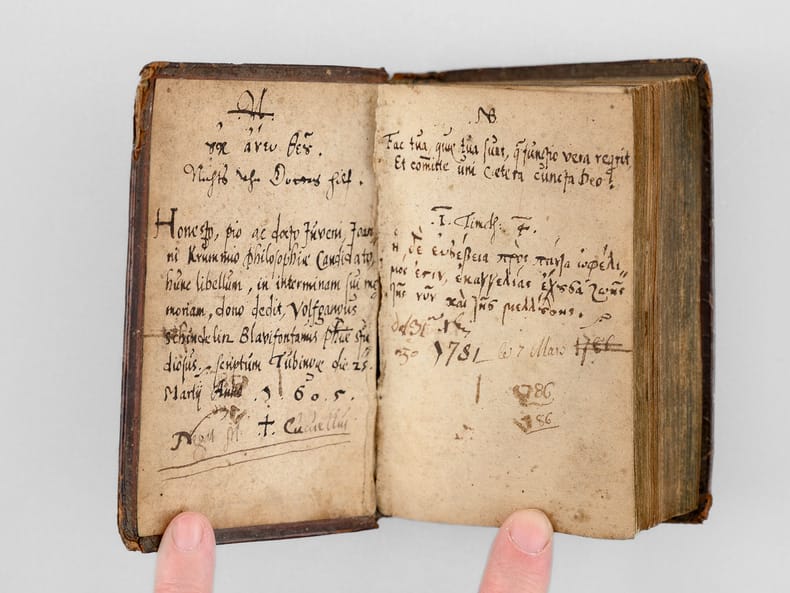 ἄνω θεῦ.
Nichts ohn Gottes hilf.
Honesto, pio ac docto Juveni, Joan
ni Krummio Philosophiæ Candidato,
hunc libellum, in interminam sui me
moriam, dono dedit, Volfgangus
Schindelin Blavifontanus Phiæ stu
diosus. scriptum Tubingæ die 25.
Martij Anno 1605.
Cucuellus
N
Fac tua, quæ tua sunt, q̃ functio vera regrit,
Et comitte uni cætera cuncta Deo!
I. Timoth: 4.
ἡ δὲ εὐσέβεια πρὸς πάντα ὠφέλι
μος ἐστιν, ἐπαγγελίας ἔχουσα ζωῆς
τῆς νῦν καὶ τῆς μελλούσης.
30 1781 le 7 Mars 1786
1786
1786